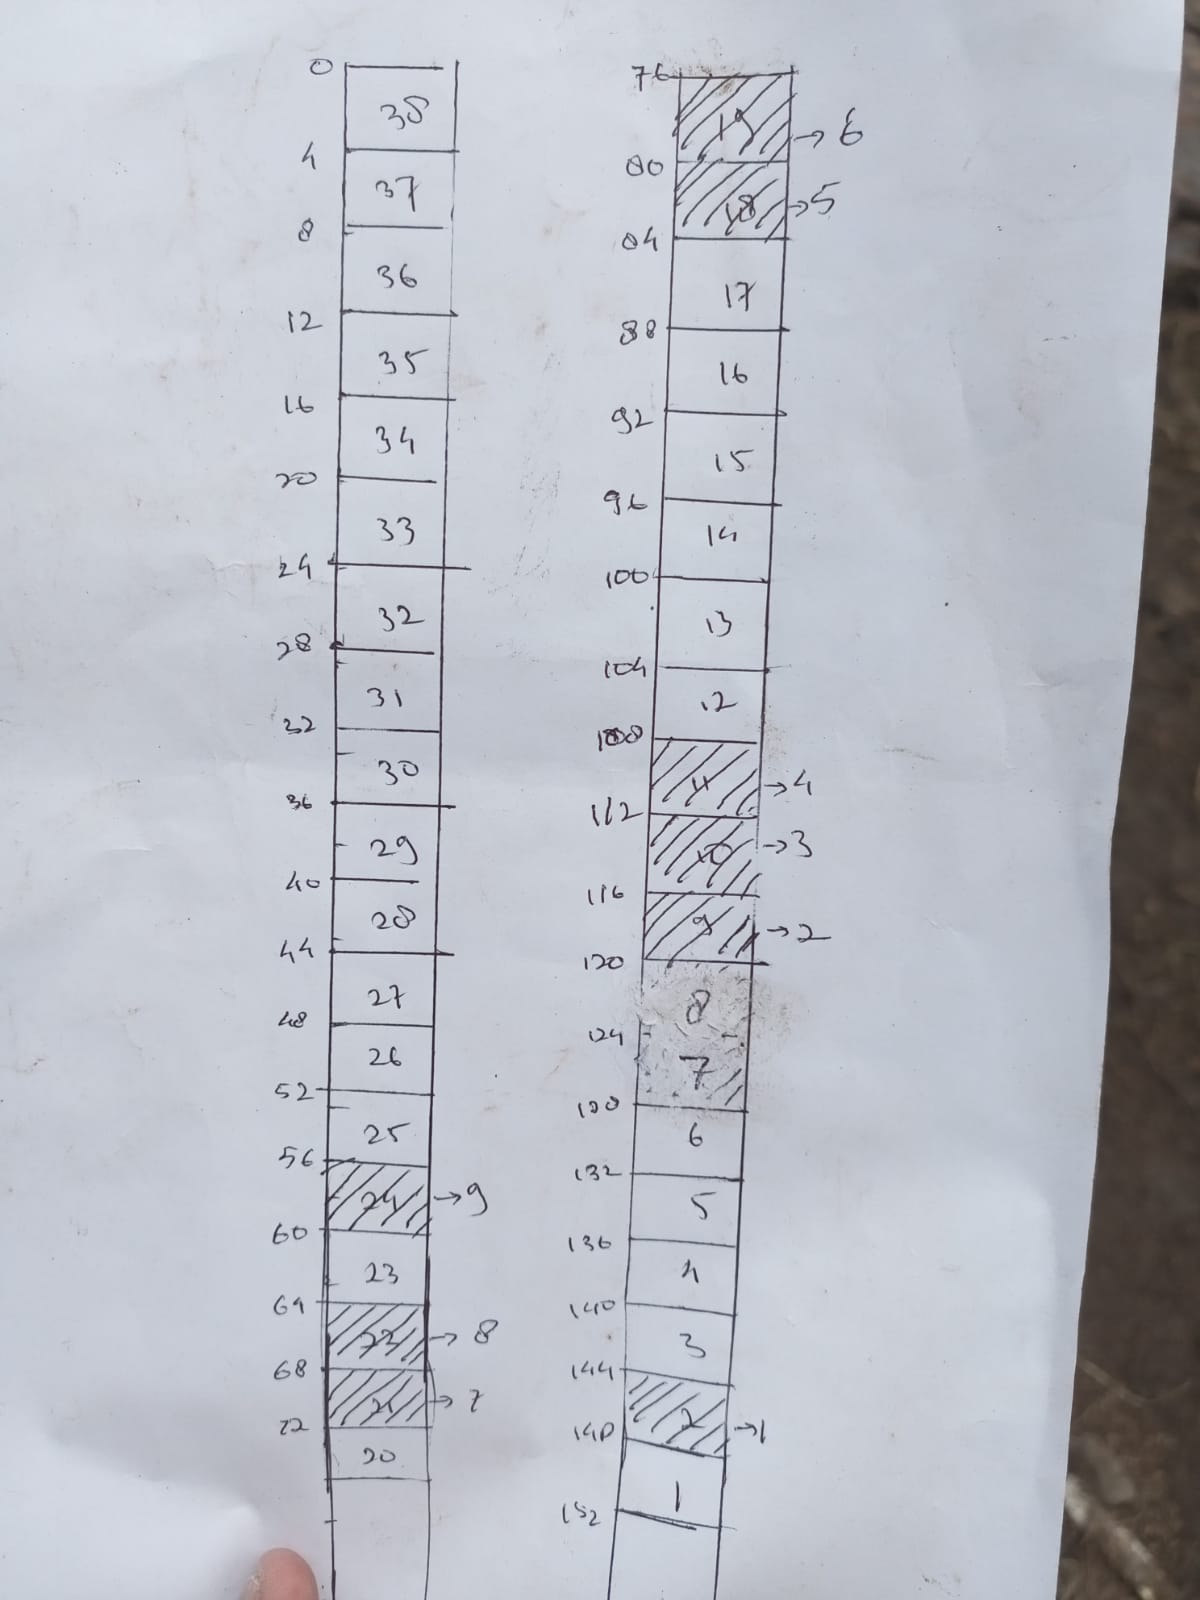 0
38
4
37
8
36
12
35
16
34
20
33
24
32
28
31
32
30
36
29
40
28
44
27
48
26
52
25
56
24 →9
60
23
64
22 →8
68
21 →7
72
20
76
19 →6
80
18 →5
84
17
88
16
92
15
96
14
100
13
104
12
108
11 →4
112
10 →3
116
9 →2
120
8
124
7
128
6
132
5
136
4
140
3
144
2 →1
148
1
152